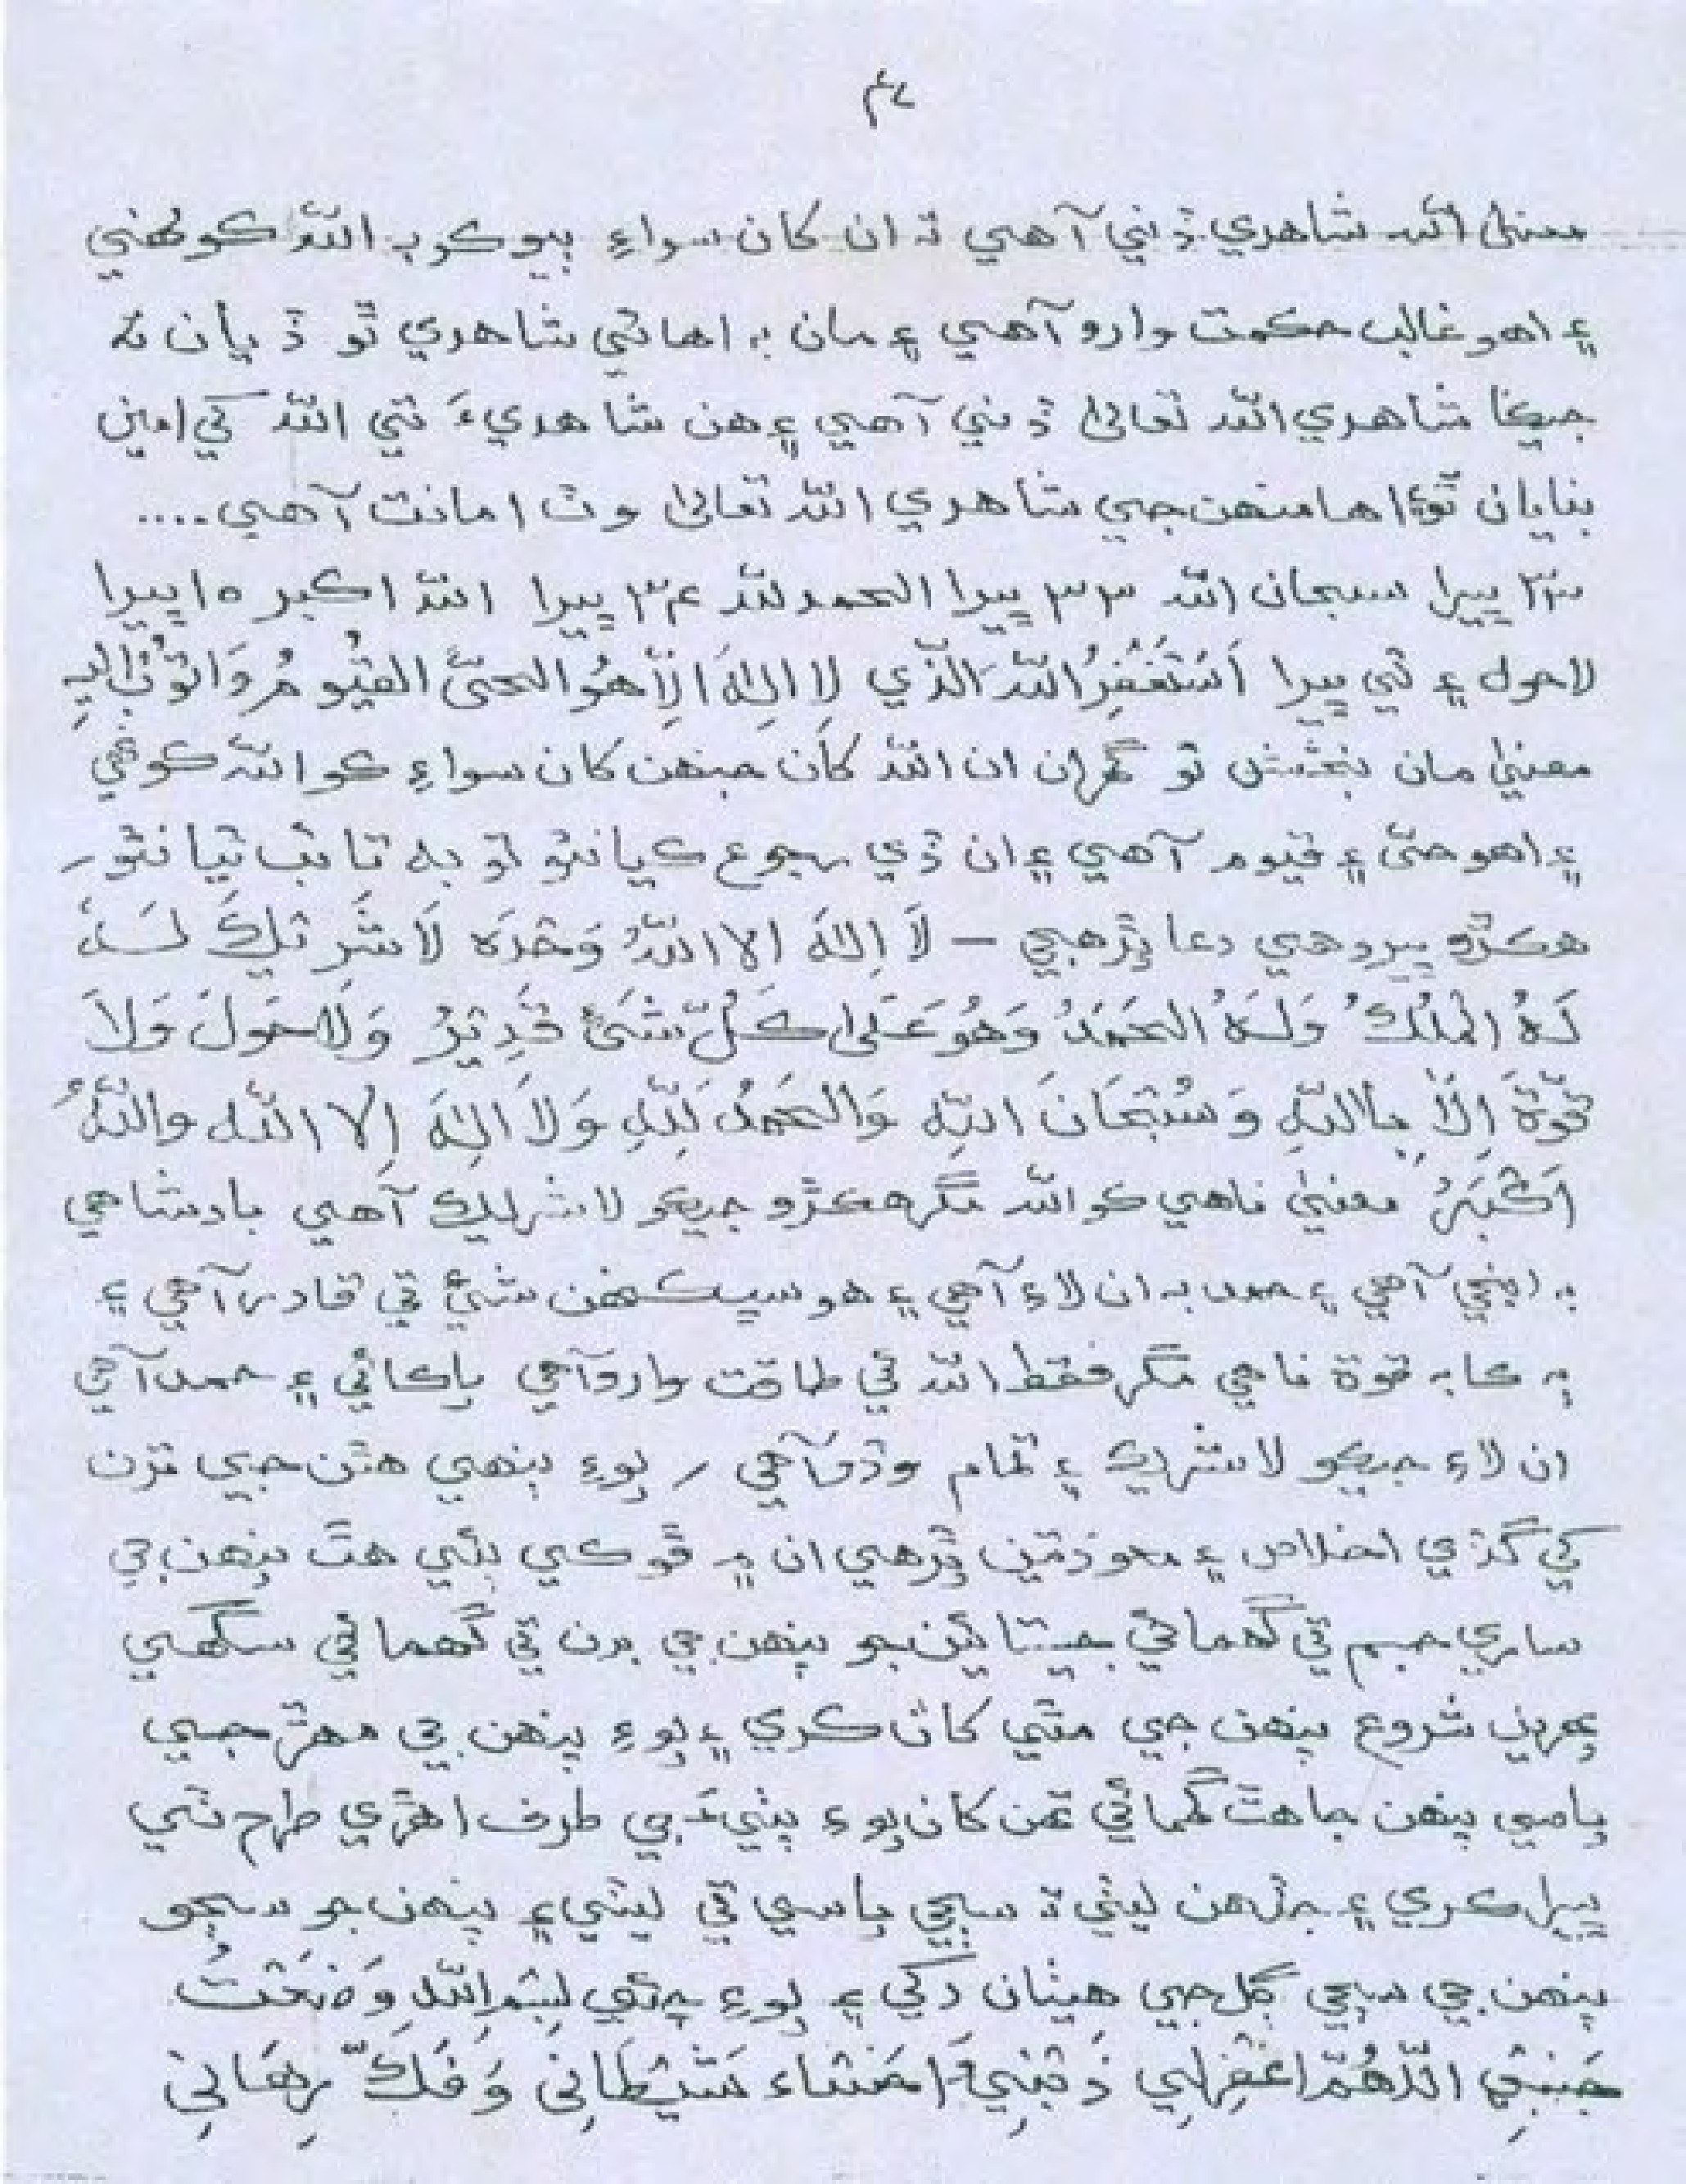 معنيٰ الله شاهدي ڏني آهي ته ان کان سواءِ ٻيو کوبه الله کونهي
۽ اهو غالب حڪمت وارو آهي ۽ مان به اهائي شاهدي ٿو ڏيان ته
جيڪا شاهدي الله تعاليٰ ڏني آهي ۽ هن شاهديءَ تي الله کي امين
بنايان ٿو ۽ اها منهنجي شاهدي الله تعاليٰ وٽ امانت آهي....
۳۳ ڀيرا سبحان الله ۳۳ ڀيرا الحمد لله ۳۴ ڀيرا الله اکبر ۱۵ ڀيرا
لاحول ۽ ٽي ڀيرا اَستَغفِرُ اللهَ الَّذي لا اِلهَ اِلّا هُو الحَيُّ القيُّومُ وَاَتُوبُ اِلَيهِ
معنيٰ مان بخشش ٿو گهران ان الله کان جنهن کان سواءِ ڪو الله ڪونهي
۽ اهو حيّ ۽ قيوم آهي ۽ ان ڏي رجوع ڪيان ٿو ۽ تائب ٿيان ٿو،
هڪڙو ڀيرو هي دعا پڙهجي – لَا اِلهَ الا اللهُ وَحْدَه لَا شَرِيْكَ لَـهُ
لَهُ المُلْكُ وَلَـهُ الحَمَدُ وَهُوَ عَلى كُلِّ شَئٍ قَدِيْرُ وَلا حَولَ وَلَا
قُوّةَ اِلّا بِاللهِ وَسُبْحَانَ اللهِ وَالحَمدُ لِلّهِ وَلَا اِلهَ اِلا الله واللهُ
اَكْبَرُ معنيٰ ناهي ڪو الله مگر هڪڙو جيڪو لاشريڪ آهي بادشاهي
به انجي آهي ۽ حمد به ان لاءِ آهي ۽ هو سڀڪنهن شيءِ تي قادر آهي ۽
به ڪابه قوة ناهي مگر فقط الله ئي طاقت وارو آهي پاڪائي ۽ حمد آهي
ان لاءِ جيڪو لاشريڪ ۽ تمام وڏو آهي، پوءِ ٻنهي هٿن جي ترن
کي گڏي اخلاص ۽ معوذتين پڙهي ان ۾ ڦوڪي ٻئي هٿ پنهنجي
ساري جسم تي گهمائي جيستائين جو پنهنجي بدن تي گهمائي سگهي
شروع پنهنجي مٿي کان ڪري ۽ پوءِ پنهنجي مهڙ جي
پاسي پنهنجا هٿ گهمائي تن کان پوءِ پٺيءَ جي طرف اهڙي طرح ٽي
ڀيرا ڪري ۽ جڏهن ليٽي ته سڄي پاسي تي ليٽي ۽ پنهنجو سڄو
پنهنجي سڄي ڳل جي هيٺان رکي ۽ پوءِ چئي بِسْمِ اللهِ وَضَعْتُ
جَنبِي اللهُمَّ اغفِرلِي ذَنبِي وَاخْسَاء شَيْطَانِي وَفَكَّ رِهَانِي